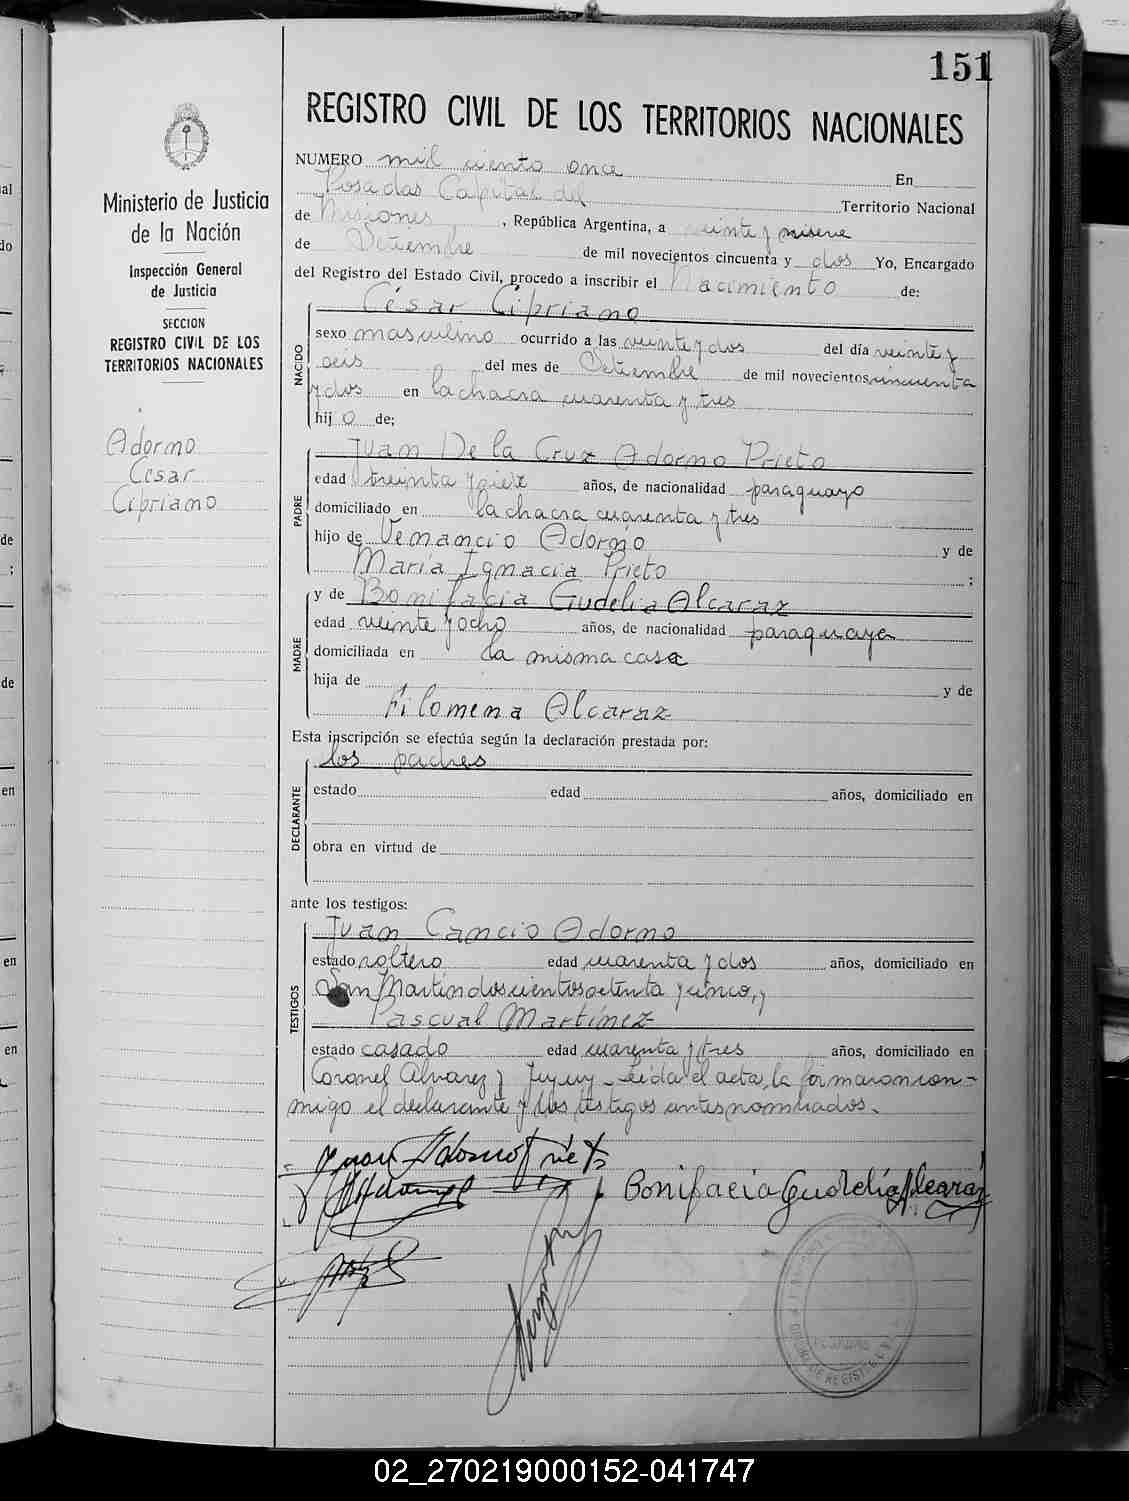 151
REGISTRO CIVIL DE LOS TERRITORIOS NACIONALES
Ministerio de Justicia
de la Nación
Inspección General
de Justicia
SECCION
REGISTRO CIVIL DE LOS
TERRITORIOS NACIONALES
Adorno
César
Cipriano
NUMERO mil ciento once En
Posadas Capital del Territorio Nacional
de Misiones, República Argentina, a veinte y nueve
de Setiembre de mil novecientos cincuenta y dos Yo, Encargado
del Registro del Estado Civil, procedo a inscribir el Nacimiento de:
César Cipriano
NACIDO
sexo masculino ocurrido a las veinte y dos del día veinte y
seis del mes de Setiembre de mil novecientos cincuenta
y dos en la chacra cuarenta y tres
hijo de;
Juan De la Cruz Adorno Prieto
PADRE
edad treinta y siete años, de nacionalidad paraguayo
domiciliado en la chacra cuarenta y tres
hijo de Venancio Adorno y de
María Ignacia Prieto ;
y de Bonifacia Gudelia Alcaraz
MADRE
edad veinte y ocho años, de nacionalidad paraguaya
domiciliada en la misma casa
hija de y de
Filomena Alcaraz
Esta inscripción se efectúa según la declaración prestada por:
los padres
DECLARANTE
estado edad años, domiciliado en
obra en virtud de
ante los testigos:
Juan Cancio Adorno
TESTIGOS
estado soltero edad cuarenta y dos años, domiciliado en
San Martín doscientos setenta y cinco, y
Pascual Martínez
estado casado edad cuarenta y tres años, domiciliado en
Coronel Alvarez y Jujuy - Leida el acta, la firmaron con-
migo el declarante y los testigos antes nombrados.
Juan Adorno Prieto
Bonifacia Gudelia Alcaraz
02_270219000152-041747